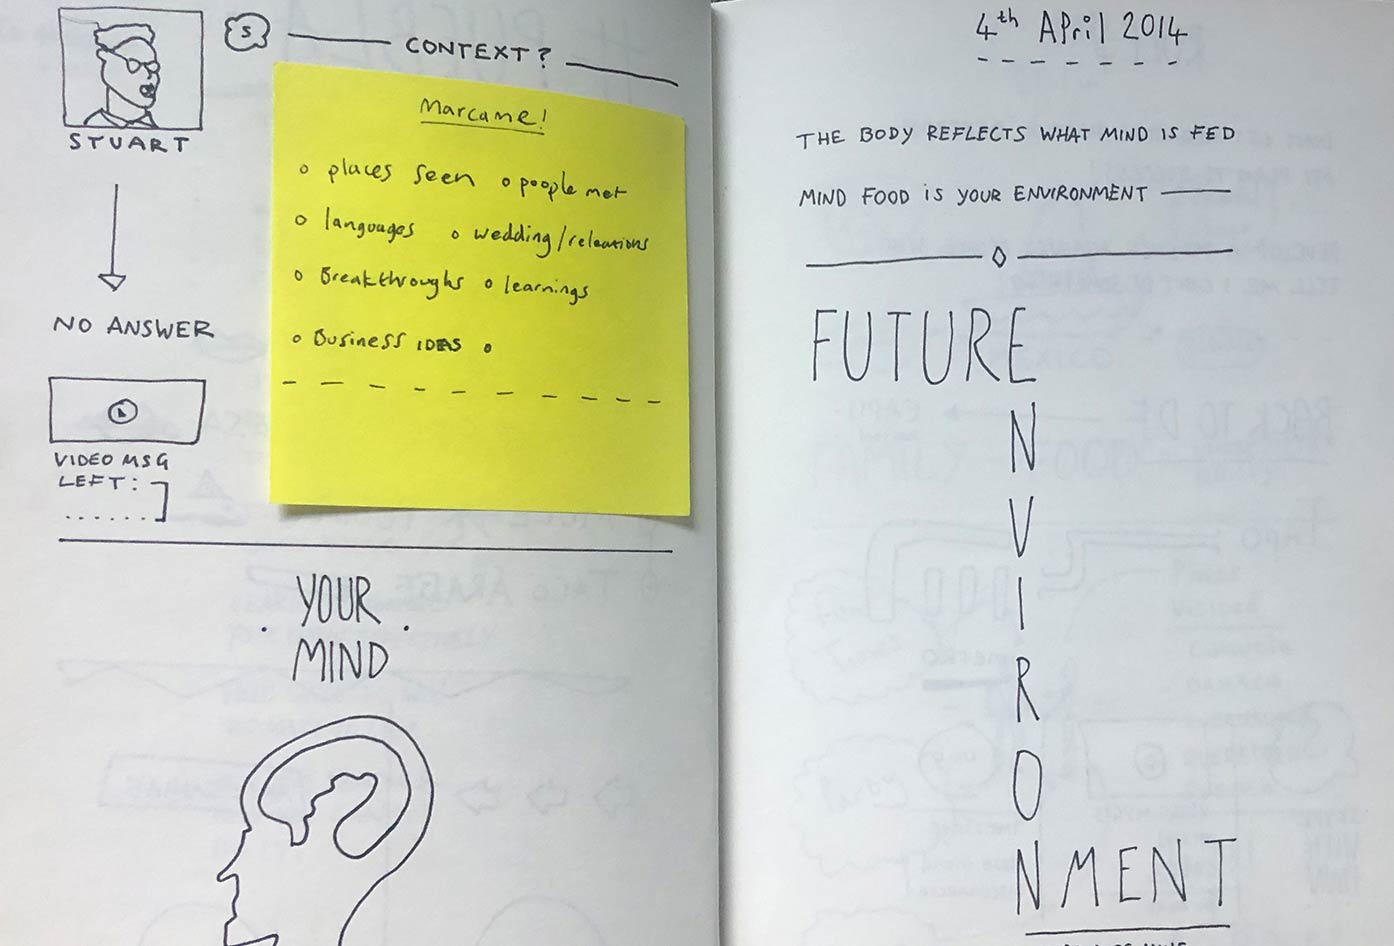 S
CONTEXT?
STUART
NO ANSWER
VIDEO MSG
LEFT:
Marcame!
places seen
people met
languages
wedding/releations
Breakthroughs
learnings
Business IDEAS
YOUR
MIND
4th April 2014
THE BODY REFLECTS WHAT MIND IS FED
MIND FOOD IS YOUR ENVIRONMENT
FUTURE
N
V
I
R
O
NMENT